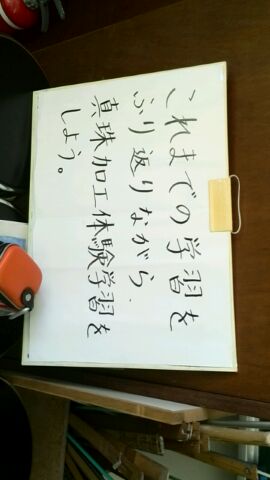 これまでの学習を
ふり返りながら、
真珠加工体験学習を
しよう。